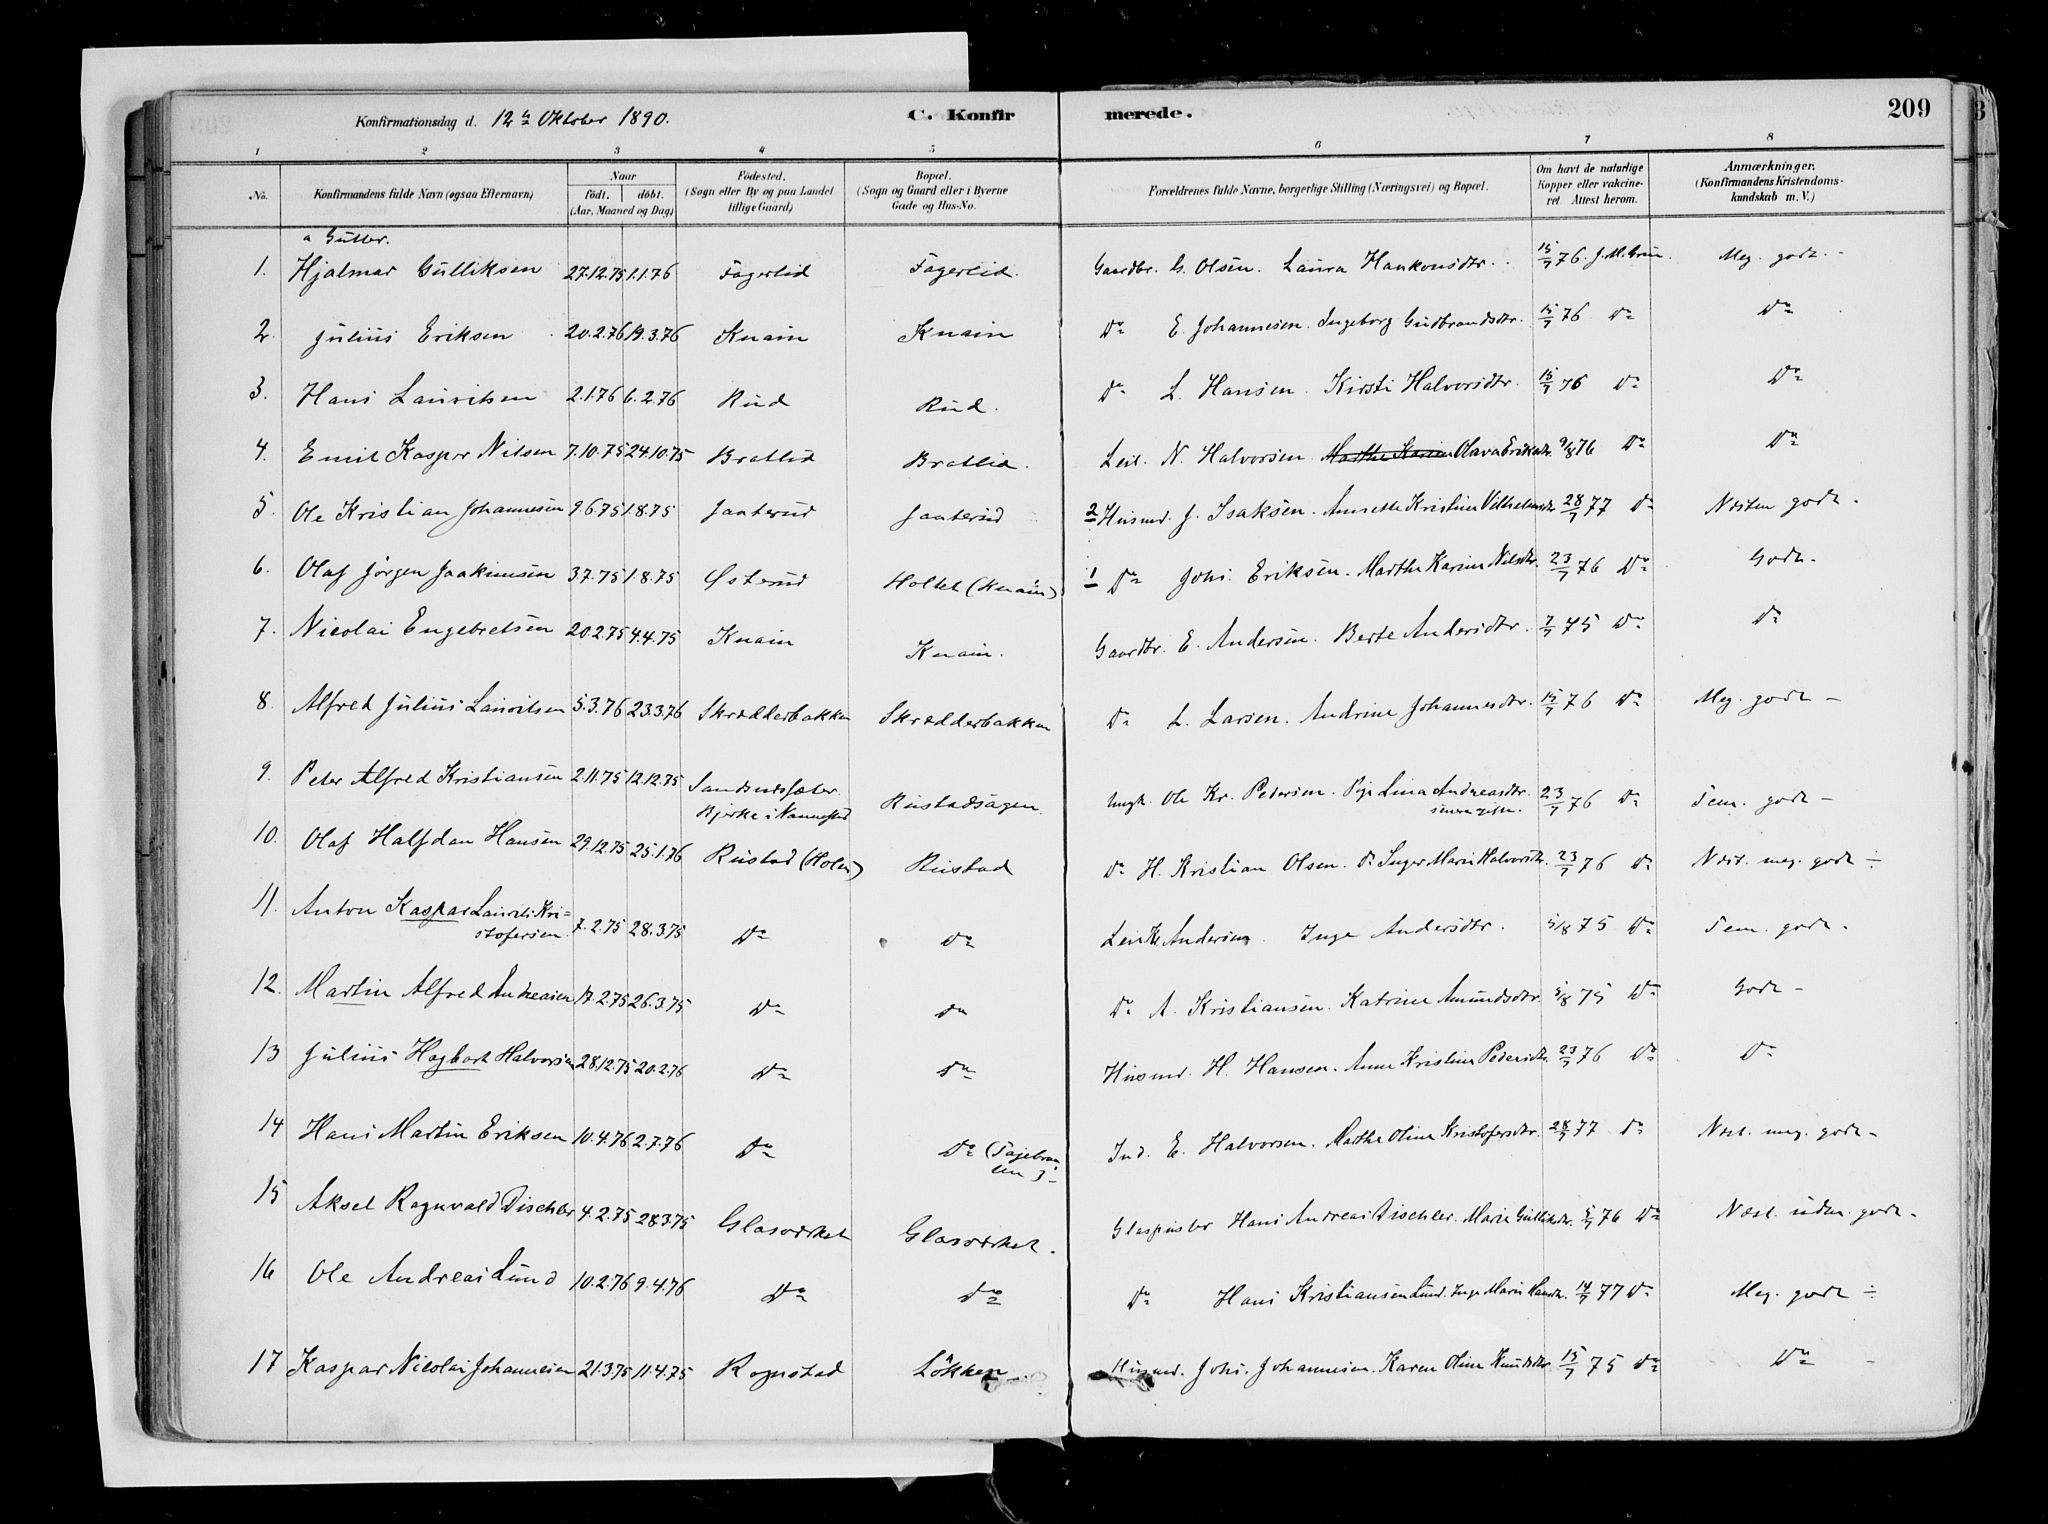 Konfirmationsdag d. 12te Oktober 1890. C. Konfirmerede. 209
1 2 3 4 5 6 7 8
No. Konfirmandens fulde Navn (ogsaa Efternavn) Naar født. døbt. (Aar, Maaned og Dag) Fødested. (Sogn eller By og paa Landet tillige Gaard) Bopæl. (Sogn og Gaard eller i Byerne Gade og Hus-No. Forældrenes fulde Navne, borgerlige Stilling (Næringsvei) og Bopæl. Om havt de naturlige Kopper eller vakcineret. Attest herom. Anmærkninger, (Konfirmandens Kristendomskundskab m. V.)
a Gutter.
1. Hjalmar Gulliksen 27.12.75 1.1.76 Fagerlid Fagerlid. Gaardbr. G. Olsen. Laura Haakonsdtr. 15/7 76. J. M. Grun. Meg. godt. -
2. Julius Eriksen 20.2.76 19.3.76 Knain Knain Do E. Johannesen. Ingeborg Gudbrandsdtr. 15/7 76 Do Do
3. Hans Lauritsen 2.1.76 6.2.76 Rud Rud. Do L. Hansen. Kirsti Halvorsdtr. 15/7 76 Do Do
4. Emil Kasper Nilsen 7.10.75 24.10.75 Bratlid Bratlid. Leil. N. Halvorsen. Marthe Karin Olava Eriksdtr. 9/8 76 Do Do
5. Ole Kristian Johannesen 9.6.75 1.8.75 Janterud Janterud 2 Husmd. J. Isaksen. Annette Kristine Vilhelmsdtr 28/7 77 Do Næsten godt.
6. Olaf Jørgen Joakimsen 3.7.75 1.8.75 Østerud Holtet (Knain) 1 Do Johs. Eriksen. Marthe Karine Nilsdtr. 23/7 76 Do Godt.
7. Nicolai Engebretsen 20.2.75 4.4.75 Knain Knain. Gaardbr. E. Andersen. Berte Andersdtr. 7/7 75 Do Do
8. Alfred Julius Lauritsen 5.3.76 23.3.76 Skrædderbakken Skrædderbakken Do L. Larsen. Andrine Johannesdtr. 15/7 76 Do Meg. godt -
9. Peter Alfred Kristiansen 2.11.75 12.12.75 Bjerke i Nannestad Rustadsagen. Ungk. Ole Kr. Pedersen. Pige Lina Andreasdtr. 23/7 76 Do Tem. godt -
10. Olaf Halfdan Hansen 29.12.75 25.1.76 Rustad (Holm) Rustad Do H. Kristian Olsen. Do Inger Marie Halvorsdtr. 23/7 76 Do Næst. meg. godt -
11. Anton Kaspar Laurits Kristofersen 7.2.75 28.3.75 Do Do Andersen. Inge Andersdtr. 5/8 75 Do Tem. godt.
12. Martin Alfred Andreasen 17.2.75 26.3.75 Do Do Do A. Kristiansen. Katrine Amundsdtr. 5/8 75 Do Godt -
13 Julius Hagbart Halvorsen 28.12.75 20.2.76 Do Do Husmd. H. Hansen. Anne Kristine Pedersdtr. 23/7 76 Do Do
14 Hans Martin Eriksen 10.4.76 2.7.76 Do Do Ind. E. Halvorsen. Marthe Oline Kristofersdtr. 28/7 77 Do Næst. meg. godt -
15 Aksel Ragnvald Dischler 4.2.75 28.3.75 Glasværket Glasværket. Glaspuster Hans Andreas Dischler. Marie Gulliksdtr. 5/7 76 Do Næst. uden. godt.
16 Ole Andreas Lund 10.2.76 9.4.76 Do Do Do Hans Kristiansen Lund. Inge Marie Hansdtr. 14/7 77 Do Meg. godt -
17 Kaspar Nicolai Johannesen 21.3.75 11.4.75 Rognstad Løkken Husmd. Johs. Johannesen. Karen Oline Knudsdtr. 15/7 75 Do Do -